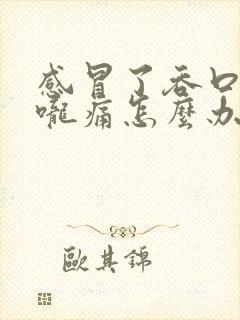 感冒了吞口
嚨痛怎麼办
歐其錦